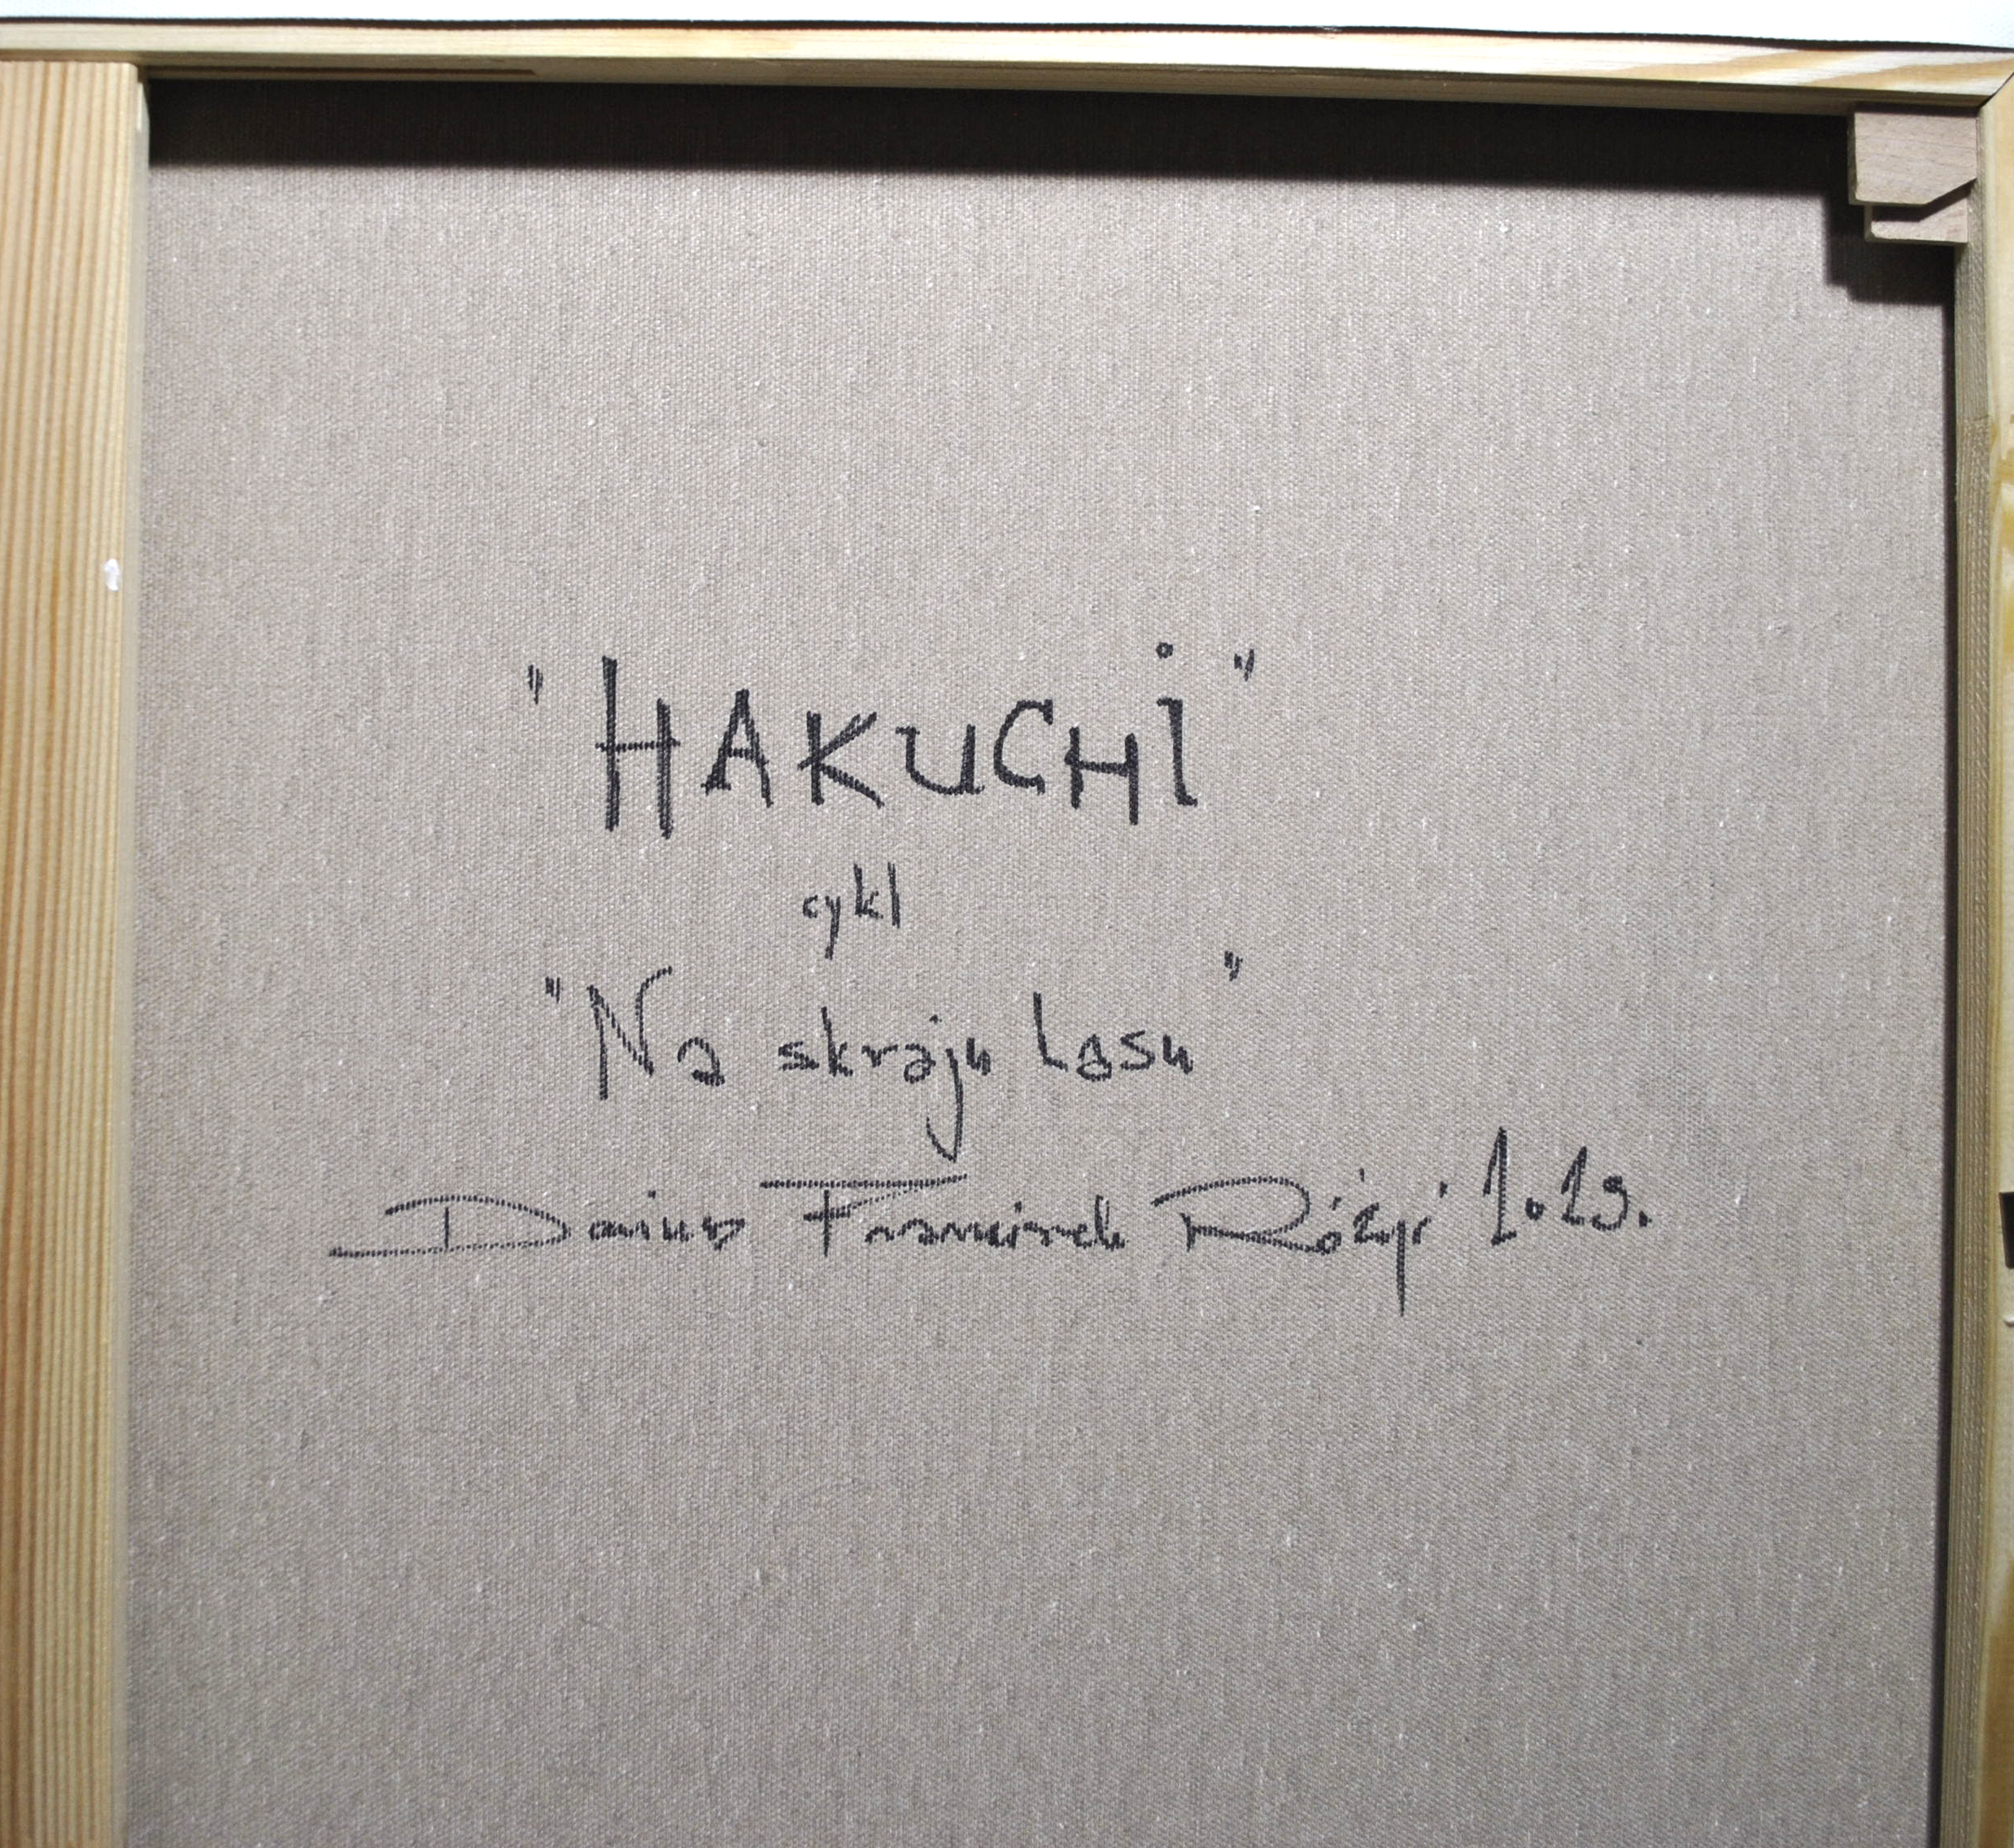 "HAKUCHi"
cykl
"Na skraju Lasu"
Dariusz Franciszek Różyc